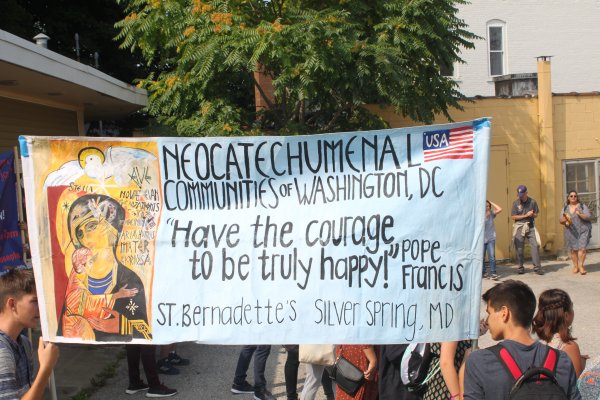 NEOCATECHUMENAL
COMMUNITIES OF WASHINGTON, DC
USA
"Have the courage
to be truly happy!"
POPE
FRANCIS
ST. Bernadette's SILVER SPRING, MD
AVE
MATER